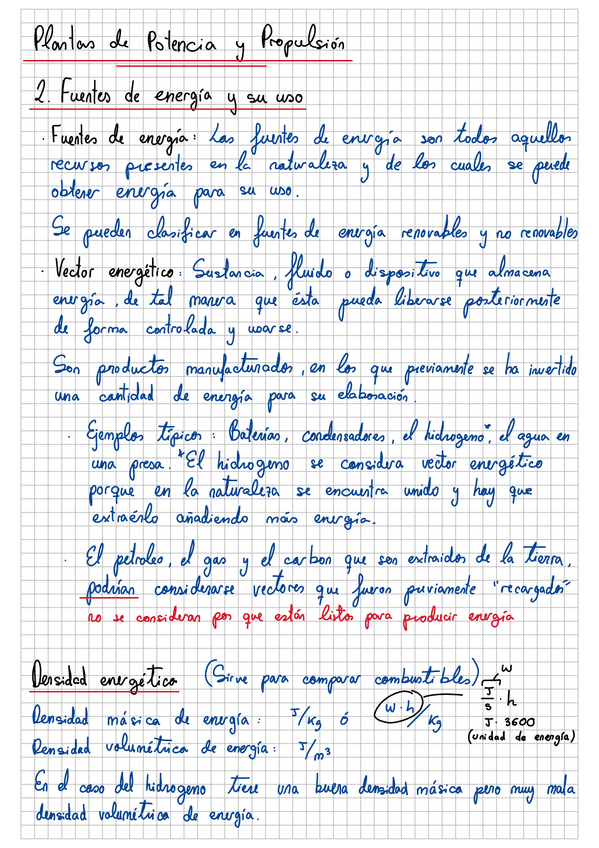 Plantas de Potencia y Propulsión
2. Fuentes de energía y su uso
· Fuentes de energía: Las fuentes de energía son todos aquellos
recursos presentes en la naturaleza y de los cuales se puede
obtener energía para su uso.
Se pueden clasificar en fuentes de energía renovables y no renovables
· Vector energético: Sustancia, fluido o dispositivo que almacena
energía, de tal manera que ésta pueda liberarse posteriormente
de forma controlada y usarse.
Son productos manufacturados, en los que previamente se ha invertido
una cantidad de energía para su elaboración.
· Ejemplos típicos: Baterías, condensadores, el hidrogeno*, el agua en
una presa. *El hidrogeno se considera vector energético
porque en la naturaleza se encuentra unido y hay que
extraérlo añadiendo más energía.
· El petroleo, el gas y el carbon que son extraidos de la tierra,
podrían considerarse vectores que fueron previamente "recargados"
no se consideran por que están listos para producir energía
Densidad energética (Sirve para comparar combustibles)
Densidad másica de energía: J/Kg ó W·h/Kg
W
J/s · h
J · 3600
(unidad de energía)
Densidad volumétrica de energía: J/m³
En el caso del hidrogeno tiene una buena densidad másica pero muy mala
densidad volumétrica de energía.